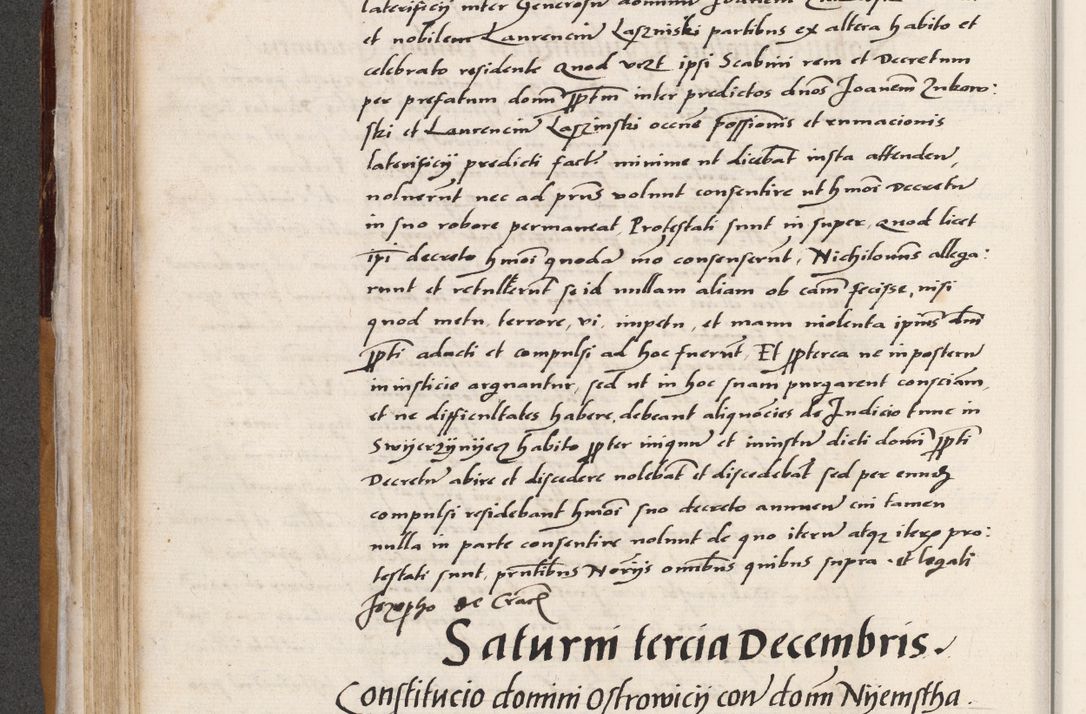 laterificij inter Generosu dominu Joanem
et nobilem Laurenciu Laszniski partibus ex altera habito et
celebrato residente Quod vczt ipsi Scabini rem et Decretum
per prefatum domn pptm inter predictos dnos Joanem Zukow:
ski et Laurenciu Laszinski occne possionis et rumacionis
laterificij predicti fact minime ut dicebat iusta attenden,
noluerut nec ad prns volunt consentire ut hmoi Decretu
in suo robore permaneat, Protestati sunt in super, Quod licet
ipi decreto hmoi quoda mo consenserut, Nichilomns allega:
runt et retullerut se id nullam aliam ob cam fecisse, nisi
quod metu, terrore, vi, impetu, et manu violenta ipius dni
ppti adacti et compulsi ad hoc fuerut, Et ppterea ne in posteru
in iusticio arguantur, sed ut in hoc suam purgarent consciam,
et ne difficultates habere debeant aliquocies de Judicio tunc in
Swijerzijnijecz habito ppter iniquu et iniustu dicti domi ppti
Decretu abire et discedere nolebat et discedebat sed per eundem
compulsi residebant hmoi suo decreto annuen cui tamen
nulla in parte consentire volunt de quo iteru atqz iterz pro:
testati sunt, prntibus Norijs omibus quibus supra . et legati
Jozepho de Crac
Saturni tercia Decembris .
Constitucio domini Ostrowicij con domn Nijemstha .